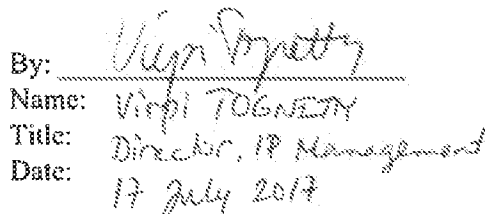 By: Virpi Tognetty
Name: Virpi TOGNETTY
Title: Director, IP Management
Date: 17 July 2017